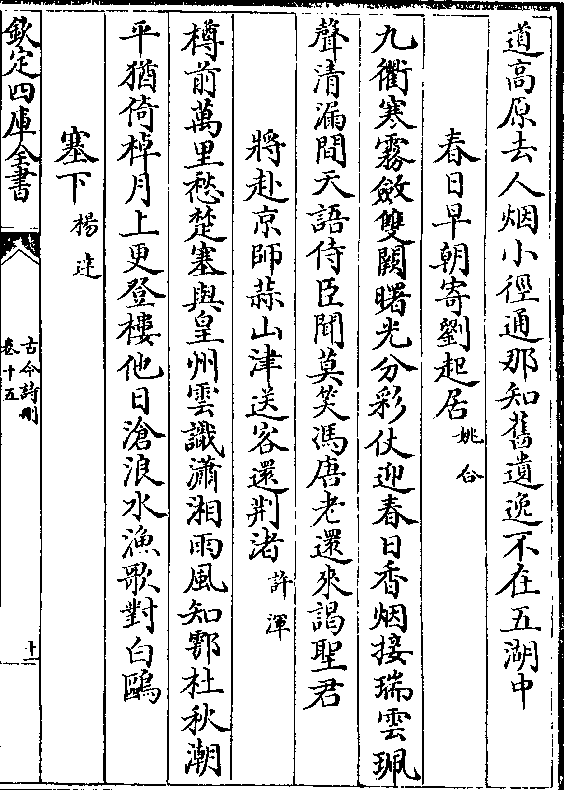 道高原去人烟小徑通那知舊遺逸不在五湖中
春日早朝寄劉起居 姚合
九衢寒霧斂雙闕曙光分彩仗迎春日香烟接瑞雲珮
聲清漏間天語侍臣聞莫笑馮唐老還來謁聖君
將赴京師蒜山津送客還荆渚 許渾
樽前萬里愁楚塞與皇州雲識瀟湘雨風知鄠杜秋潮
平猶倚棹月上更登樓他日滄浪水漁歌對白鷗
塞下 楊達
欽定四庫全書
古今詩刪
卷十五
十一